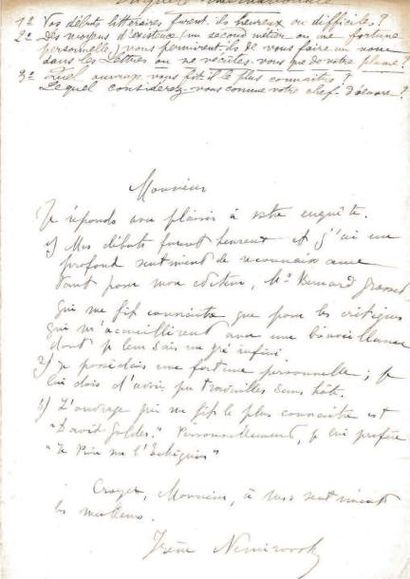 Enquête internationale
1º Vos débuts littéraires furent-ils heureux ou difficiles ?
2º Des moyens d'existence (un second métier ou une fortune
personnelle) vous permirent-ils de vous faire un nom
dans les Lettres ou ne vécûtes-vous que de votre plume ?
3º Quel ouvrage vous fit-il le plus connaître ?
Lequel considérez-vous comme votre chef-d'œuvre ?
Monsieur
Je réponds avec plaisir à votre enquête.
1) Mes débuts furent heureux et j'ai un
profond sentiment de reconnaissance
tant pour mon éditeur, Mr Bernard Grasset
qui me fit connaître que pour les critiques
qui m'accueillirent avec une bienveillance
dont je leur sais un gré infini.
2) Je possédais une fortune personnelle ; je
lui dois d'avoir pu travailler sans hâte.
3) L'ouvrage qui me fit le plus connaître est
"David Golder." Personnellement, je lui préfère
"Le Pion sur l'Echiquier"
Croyez, Monsieur, à mes sentiments
les meilleurs.
Irène Némirovsky